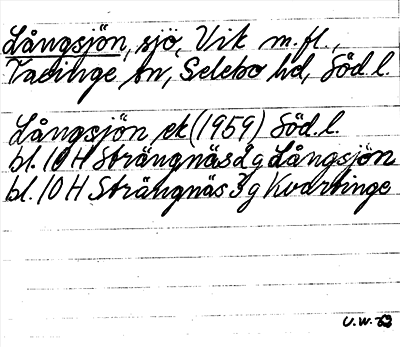 Långsjön, sjö, Vik m.fl.,
Taxinge sn, Selebo hd, Söd.l.
Långsjön ek (1959) Söd.l.
bl. 10 H Strängnäs 2 g Långsjön
bl. 10 H Strängnäs 3 g Kvartinge
U.W.